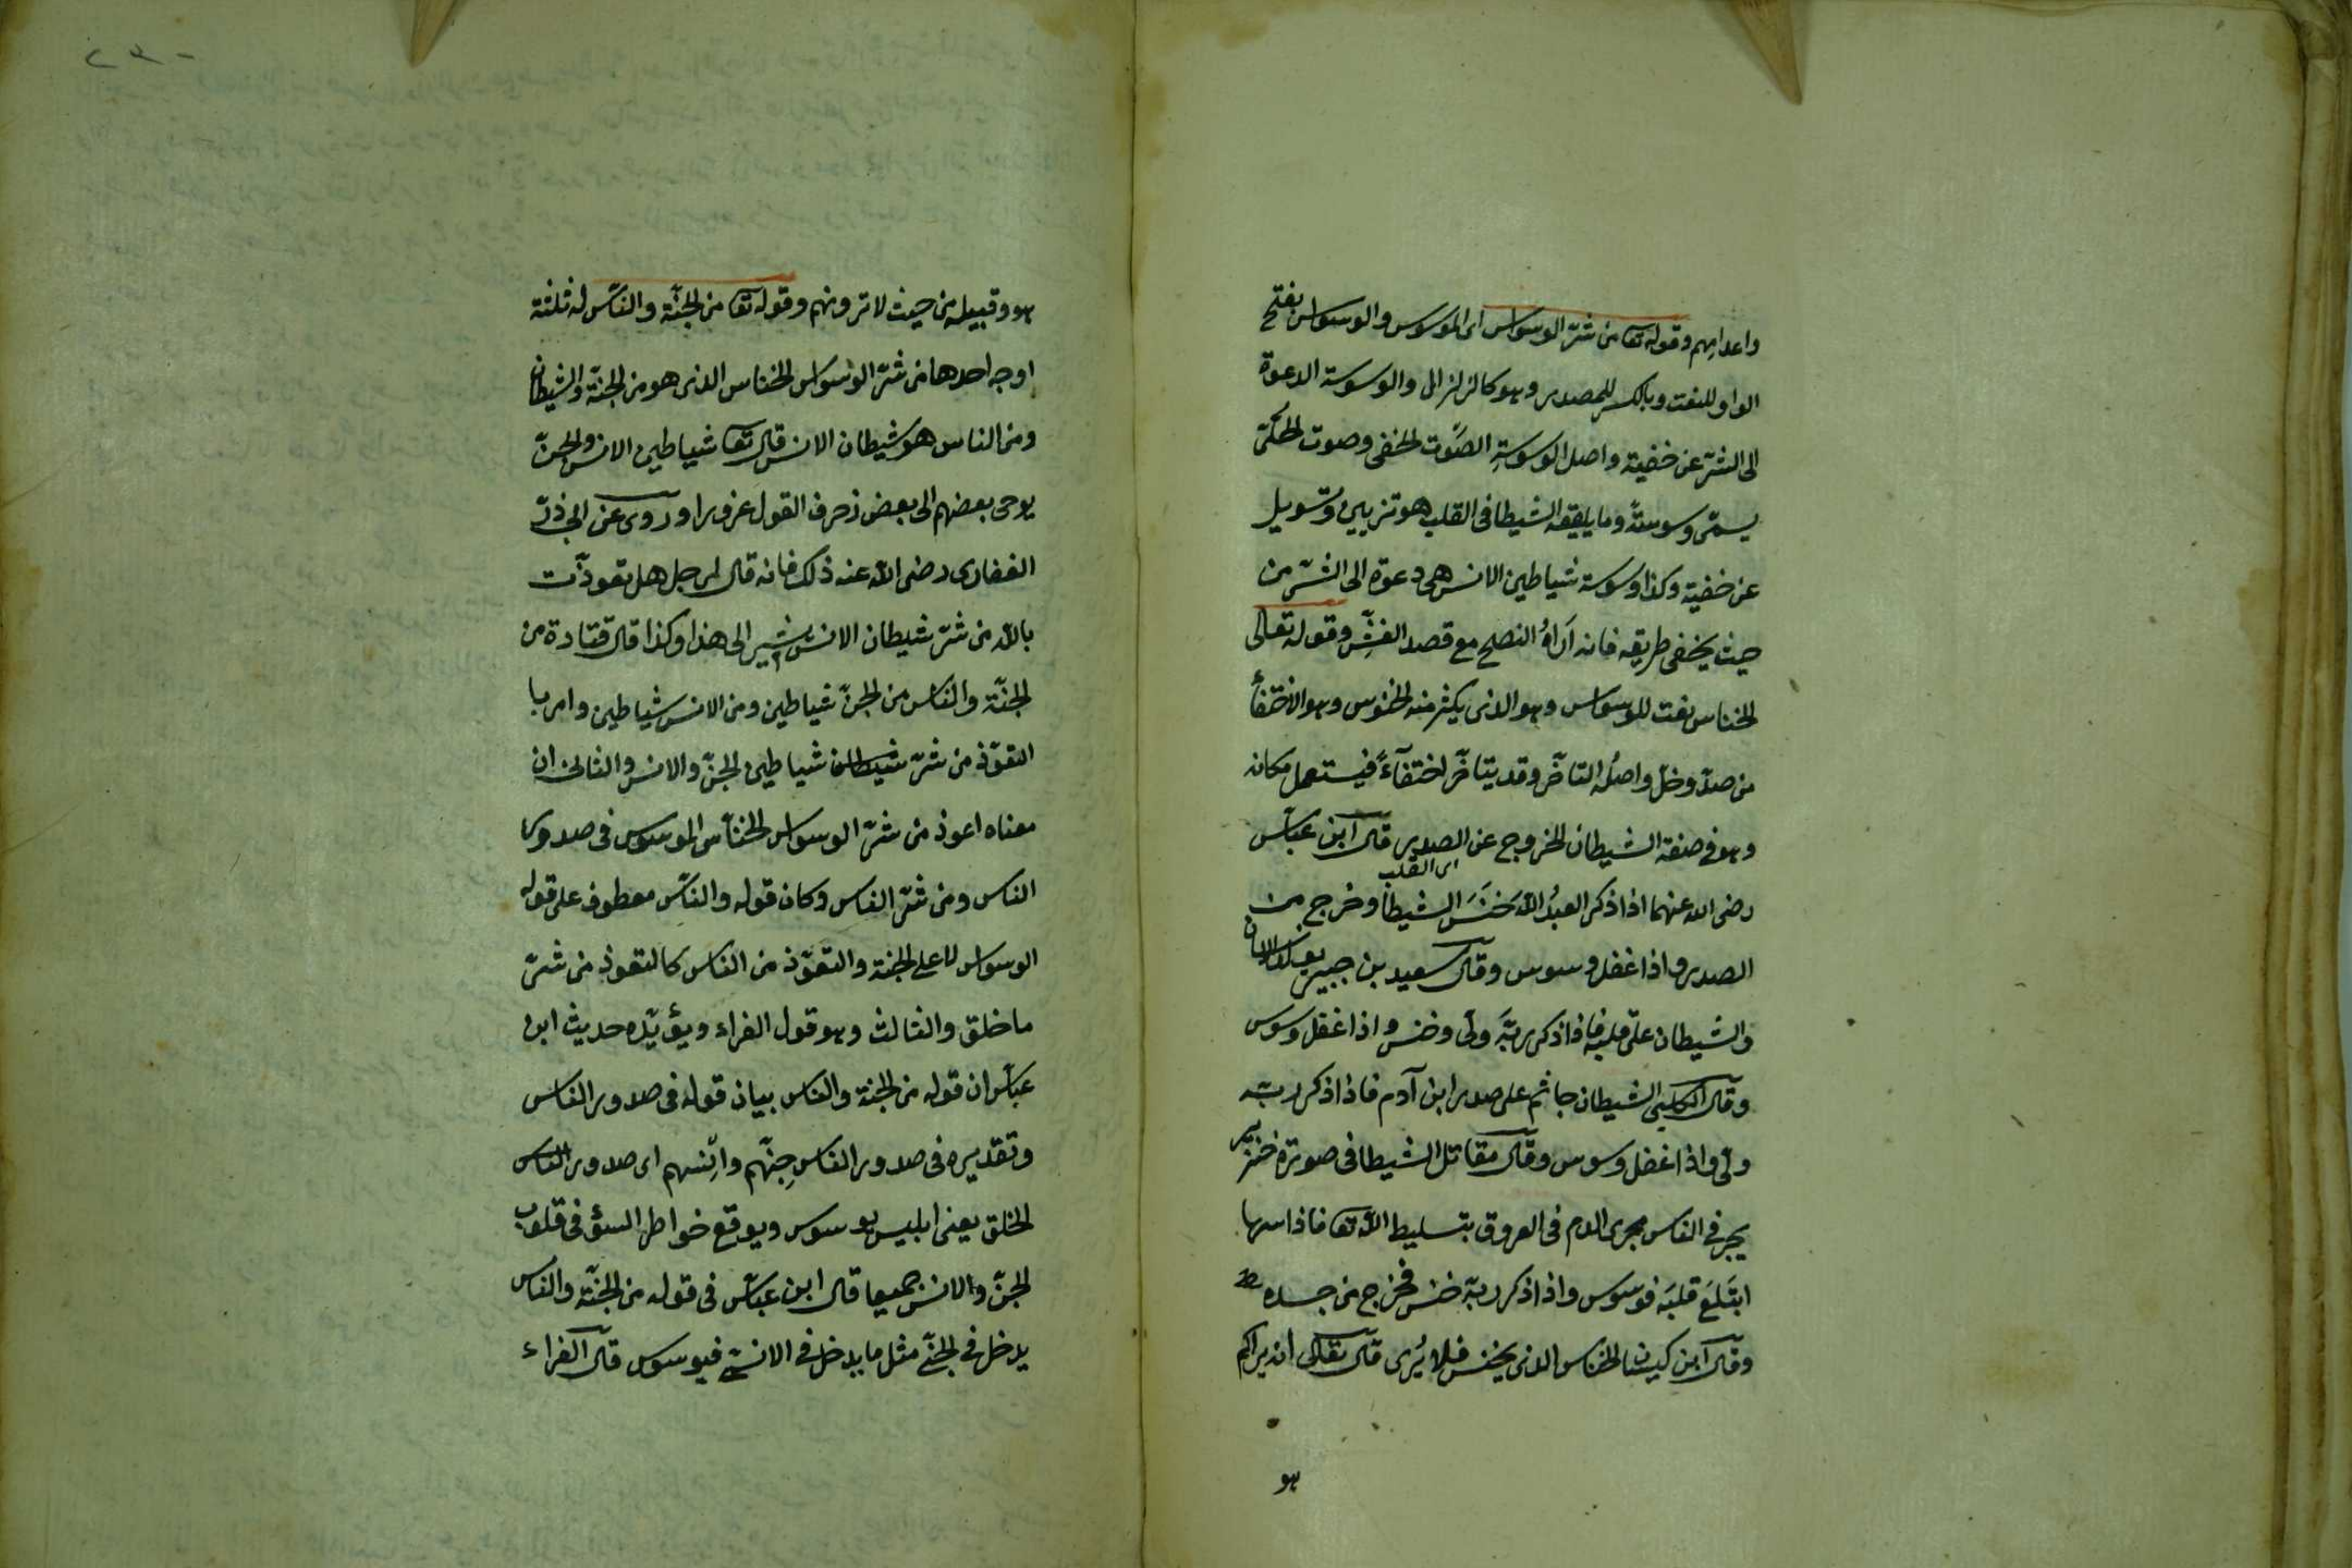 واعدامهم وقوله تعا من شرّ الوسواس اى الموسوس والوسواس بفتح
الواو للنعت وبالكسر للمصدر وهو كالزلزال والوسوسة الدعوة
الى الشرّ عن خفية واصل الوسوسةِ الصَّوت الخفى وصوت الحلىّ
يسمّى وسوسةً وما يلقيه الشيطا فى القلب هو تزيين وتسويل
عن خفية وكذا وسوسة شياطين الانس هى دعوة الى الشرّ من
حيث يخفى طريقه فانه اَراهُ النصح مع قصد الغشِّ وقوله تعالى
الخناس نعت للوسواس وهو الذى يكثر منه الخنوس وهو الاختفأ
من صدّ وخل واصلُه التأخّر وقد يتأخّر اختفآءً فيستعمل مكانه
وهو فى صفة الشيطان الخروج عن الصدر قال ابن عبّاس
اى القلب
رضى الله عنهما اذا ذكر العبدُ اللهَ خَنَسَ الشيطا وخرج من
الصدر واذا غفل وسوس وقال سعيد بن جبير يولد الانسان
والشيطان على قلبه فاذا ذكر ربَّه ولّى وخنس واذا غفل وسوس
وقال الكلبى الشيطان جاثم على صدر ابن آدم فاذا ذكر ربّه
ولّى واذا غفل وسوس وقال مقاتل الشيطا فى صورة خنزير
يجرى فى الناس مجرى الدم فى العروق بتسليط الله تعا فاذا سها
ابتَلعَ قلبَه فوسوس واذا ذكر ربّه خنس فخرج من جسده
وقال ابن كيسان الخناس الذى يخنس فلا يُرى قال تعالى انه يراكم
هو
٢٣٠
هو وقبيله من حيث لا ترونهم وقوله تعا من الجنّة والناس له ثلثة
اوجه احدها من شرّ الوسواس الخناس الذى هو من الجنّة والشيطان
ومن الناس هو شيطان الانس قال تعا شياطين الانس والجنّ
يوحى بعضهم الى بعض زخرف القول غرورا وروى عن ابى ذرّ
الغفارى رضى الله عنه ذلك فانه قال لرجل هل تعوذّت
بالله من شرّ شيطان الانس يشير الى هذا وكذا قال قتادة من
الجنّة والناس من الجنّ شياطين ومن الانس شياطين وامر با
التعوّذ من شرّ شيطان شياطين الجنّ والانس والثانى ان
معناه اعوذ من شرّ الوسواس الخنّاس الموسوس فى صدور
الناس ومن شرّ الناس وكان قوله والناس معطوف على قوله
الوسواس لا على الجنة والتعوّذ من الناس كالتعوذ من شرّ
ما خلق والثالث وهو قول الفراء ويؤيّده حديث ابن
عبّاس ان قوله من الجنة والناس بيان قوله فى صدور الناس
وتقديره فى صدور الناس جِنّهم واِنسهم اى صدور الناس
الخلق يعنى ابليس يوسوس ويوقع خواطر السؤ فى قلوب
الجنّ والانس جميعا قال ابن عبّاس فى قوله من الجنّة والناس
يدخل فى الجنّى مثل ما يدخل فى الانسىّ فيوسوس قال الفراء